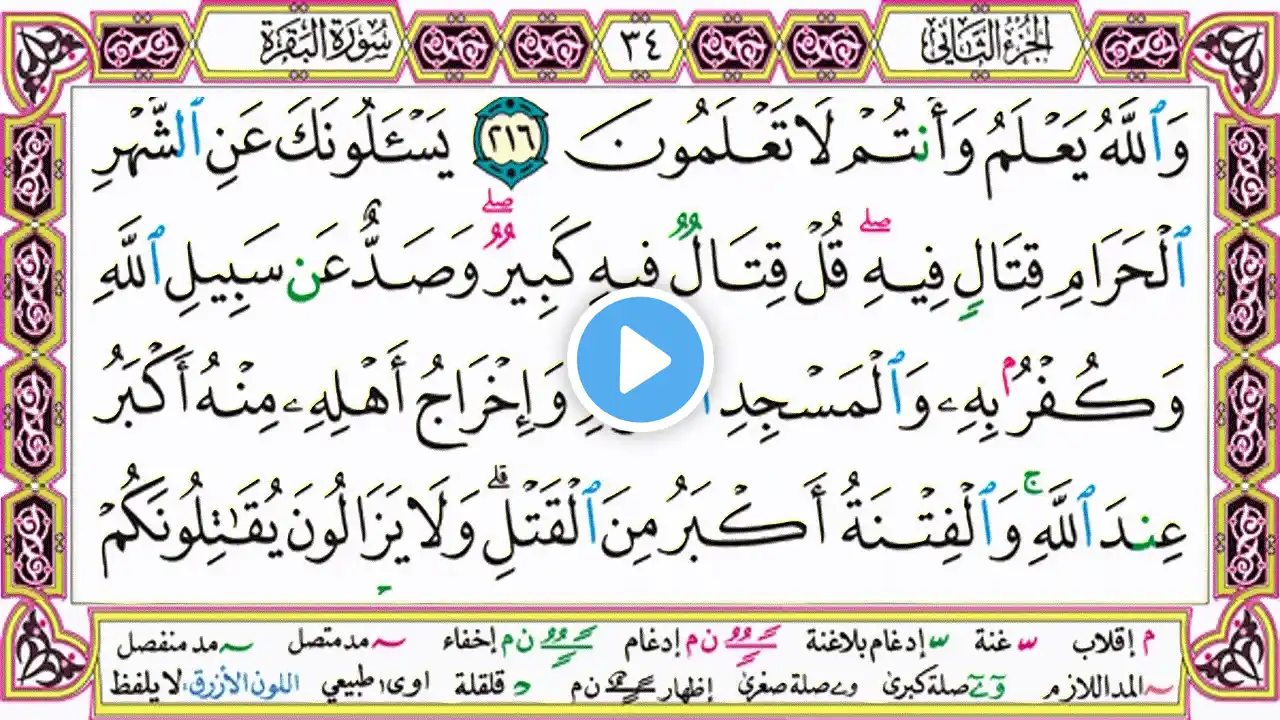 الجزء الثاني
٣٤
سورة البقرة
وَٱللَّهُ يَعْلَمُ وَأَنتُمْ لَا تَعْلَمُونَ ٢١٦ يَسْـَٔلُونَكَ عَنِ ٱلشَّهْرِ
ٱلْحَرَامِ قِتَالٍ فِيهِ ۖ قُلْ قِتَالٌ فِيهِ كَبِيرٌ ۖ وَصَدٌّ عَن سَبِيلِ ٱللَّهِ
وَكُفْرٌۢ بِهِۦ وَٱلْمَسْجِدِ وَإِخْرَاجُ أَهْلِهِۦ مِنْهُ أَكْبَرُ
عِندَ ٱللَّهِ ۚ وَٱلْفِتْنَةُ أَكْبَرُ مِنَ ٱلْقَتْلِ ۗ وَلَا يَزَالُونَ يُقَـٰتِلُونَكُمْ
م إقلاب غنة إدغام بلاغنة ن م إدغام ن م إخفاء مد متصل مد منفصل
المد اللازم صلة كبرى صلة صغرى إظهار ن م قلقلة اوى طبيعي اللون الأزرق لا يلفظ